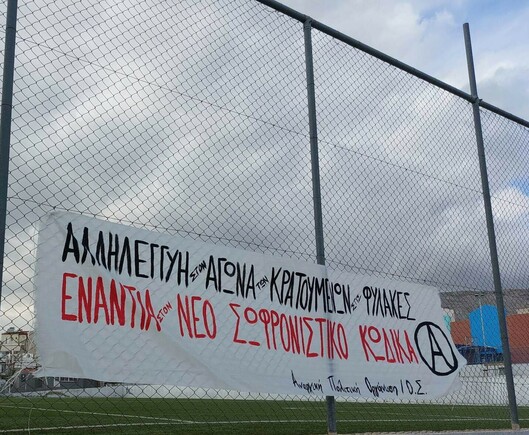 ΑΛΛΗΛΕΓΓΥΗ ΣΤΟΝ ΑΓΩΝΑ ΤΩΝ ΚΡΑΤΟΥΜΕΝΩΝ ΣΤΙΣ ΦΥΛΑΚΕΣ
ΕΝΑΝΤΙΑ ΣΤΟΝ ΝΕΟ ΣΩΦΡΟΝΙΣΤΙΚΟ ΚΩΔΙΚΑ Ⓐ
Αναρχική Πολιτική Οργάνωση / Ο.Σ.